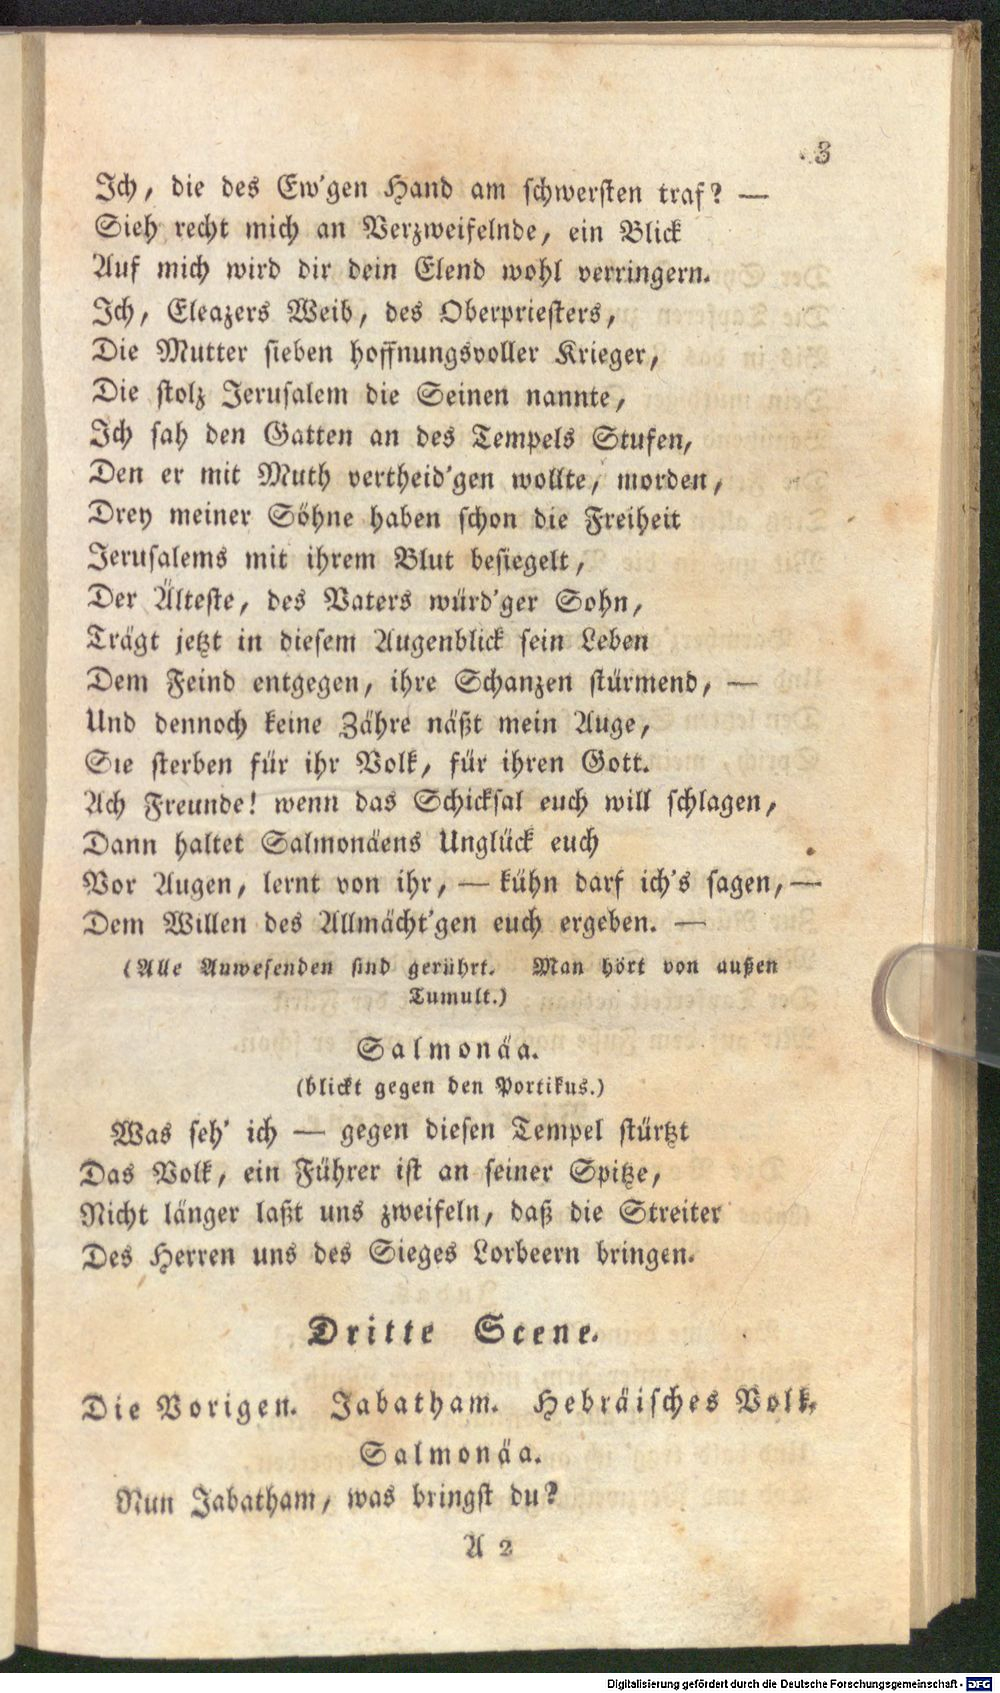 3
Ich, die des Ew'gen Hand am schwersten traf? —
Sieh recht mich an Verzweifelnde, ein Blick
Auf mich wird dir dein Elend wohl verringern.
Ich, Eleazers Weib, des Oberpriesters,
Die Mutter sieben hoffnungsvoller Krieger,
Die stolz Jerusalem die Seinen nannte,
Ich sah den Gatten an des Tempels Stufen,
Den er mit Muth vertheid'gen wollte, morden,
Drey meiner Söhne haben schon die Freiheit
Jerusalems mit ihrem Blut besiegelt,
Der Älteste, des Vaters würd'ger Sohn,
Trägt jetzt in diesem Augenblick sein Leben
Dem Feind entgegen, ihre Schanzen stürmend, —
Und dennoch keine Zähre näßt mein Auge,
Sie sterben für ihr Volk, für ihren Gott.
Ach Freunde! wenn das Schicksal euch will schlagen,
Dann haltet Salmonäens Unglück euch
Vor Augen, lernt von ihr, — kühn darf ich's sagen, —
Dem Willen des Allmächt'gen euch ergeben. —
(Alle Anwesenden sind gerührt. Man hört von außen
Tumult.)
Salmonäa.
(blickt gegen den Portikus.)
Was seh' ich — gegen diesen Tempel stürtzt
Das Volk, ein Führer ist an seiner Spitze,
Nicht länger laßt uns zweifeln, daß die Streiter
Des Herren uns des Sieges Lorbeern bringen.
Dritte Scene.
Die Vorigen. Jabatham. Hebräisches Volk.
Salmonäa.
Nun Jabatham, was bringst du?
A 2
Digitalisierung gefördert durch die Deutsche Forschungsgemeinschaft - DFG